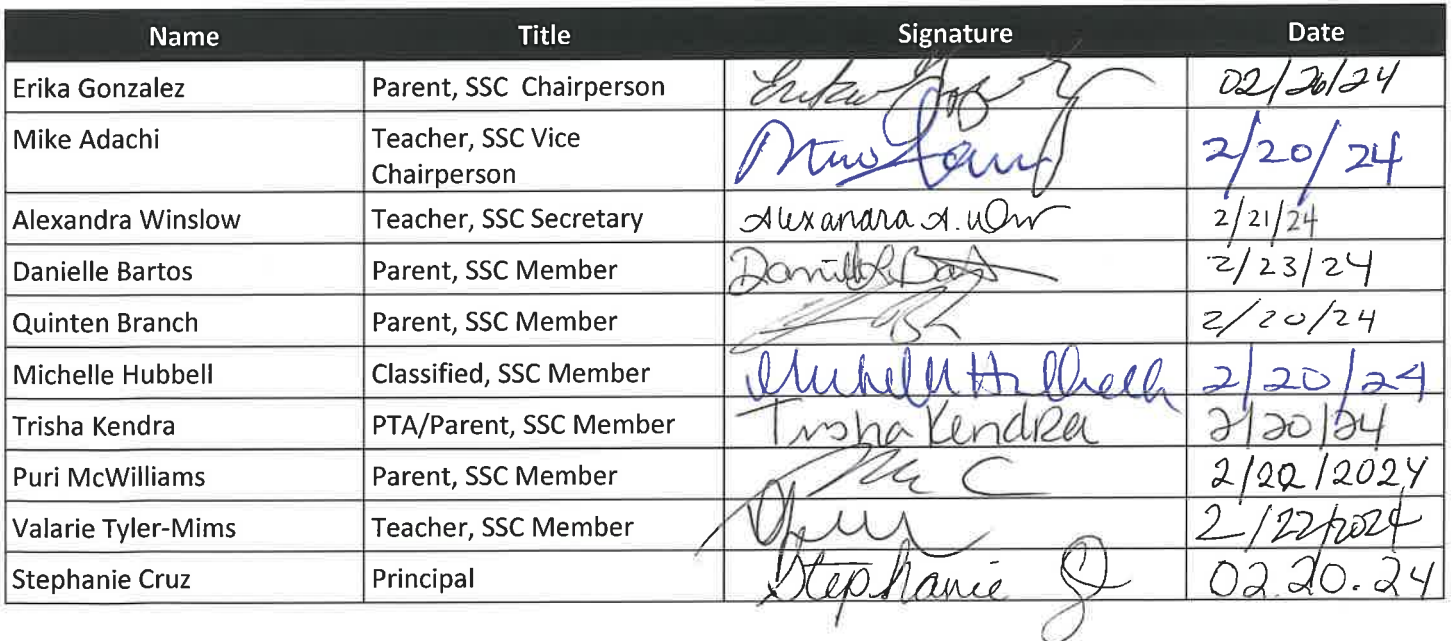 Name Title Signature Date
Erika Gonzalez Parent, SSC Chairperson 02/26/24
Mike Adachi Teacher, SSC Vice
Chairperson 2/20/24
Alexandra Winslow Teacher, SSC Secretary Alexandra A. 2/21/24
Danielle Bartos Parent, SSC Member 2/23/24
Quinten Branch Parent, SSC Member 2/20/24
Michelle Hubbell Classified, SSC Member 2/20/24
Trisha Kendra PTA/Parent, SSC Member Trisha Kendra 2/20/24
Puri McWilliams Parent, SSC Member 2/22/2024
Valarie Tyler-Mims Teacher, SSC Member 2/22/2024
Stephanie Cruz Principal Stephanie 02.20.24